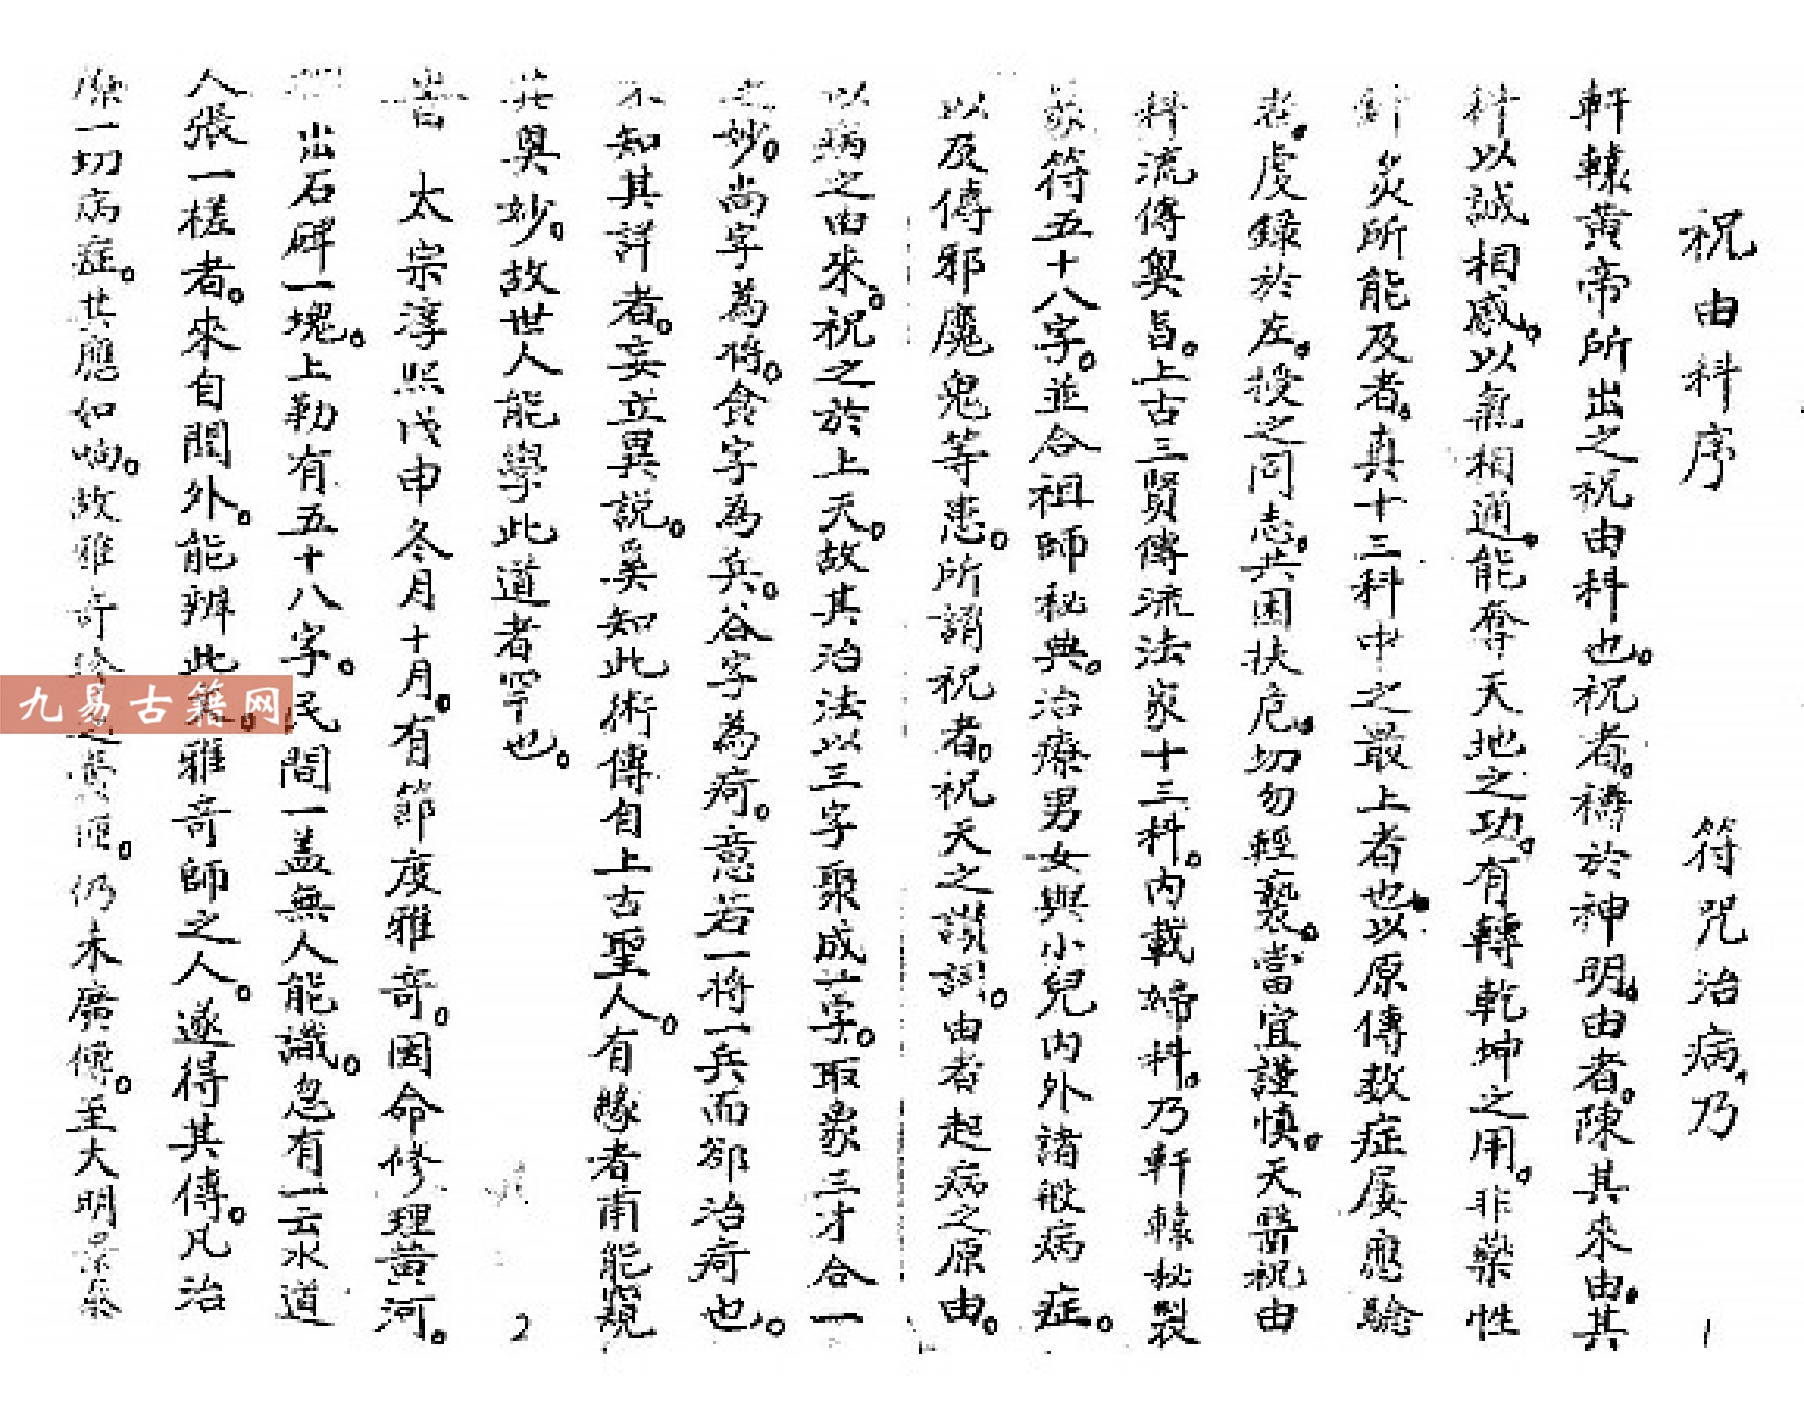 祝由科序 符咒治病，乃 1
軒轅黃帝所出之祝由科也。祝者。禱於神明。由者。陳其來由。其
科以誠相感。以氣相通。能奪天地之功。有轉乾坤之用。非藥性
針炙所能及者。真十三科中之最上者也。以原傳数症屡應驗
者。虔録於左。授之同志。共困扶危。切勿輕褻。當宜謹慎。天醫祝由
科流傳奥旨。上古三賢傳流法家十三科。内載婦科。乃軒轅秘製
篆符五十八字。並合祖師秘典。治療男女與小兒内外諸般病症。
以及傳邪魔鬼等患。所謂祝者。祝天之讃詞。由者起病之原由。
以病之由來。祝之於上天。故其治法以三字聚成一字。取象三才合一
之妙。尚字為将。食字為兵。谷字為疴。意若一将一兵而卻治疴也。
不知其詳者。妄立異説。奚知此術傳自上古聖人。有緣者南能窺
其奥妙。故世人能學此道者罕也。 2
昔 太宗淳熙戊申冬月十月。有節度雅奇。因命修理黃河。
出石碑一塊。上勒有五十八字。民間一盖無人能識。忽有一云水道
人張一槎者。來自閣外。能辨此。雅奇師之人。遂得其傳。凡治
一切病症。其應如响。故雅奇 之 。仍未廣傳。至大明
九易古籍网